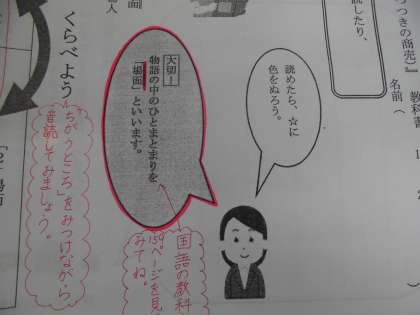 つきの商売』
教科書
名前（
試したり、
読めたら、☆に
色をぬろう。
大切！
物語の中のひとまとまりを
「場面」といいます。
国語の教科
159ページを見
みてね。
くらべよう
「ちがうところ」をみつけながら、
音読してみましょう。